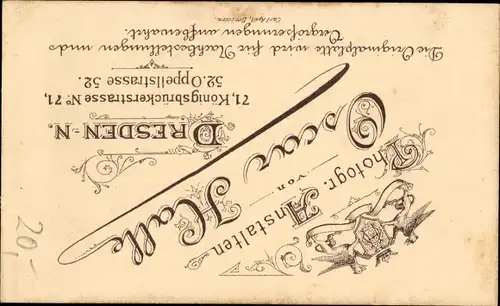 Photogr. Anstalten
von
Oscar Halle
DRESDEN-N.
71, Königsbrückerstrasse No 71,
52. Oppellstrasse 52.
Die Originalplatte wird für Nachbestellungen und
Vergrösserungen aufbewahrt.
20,-